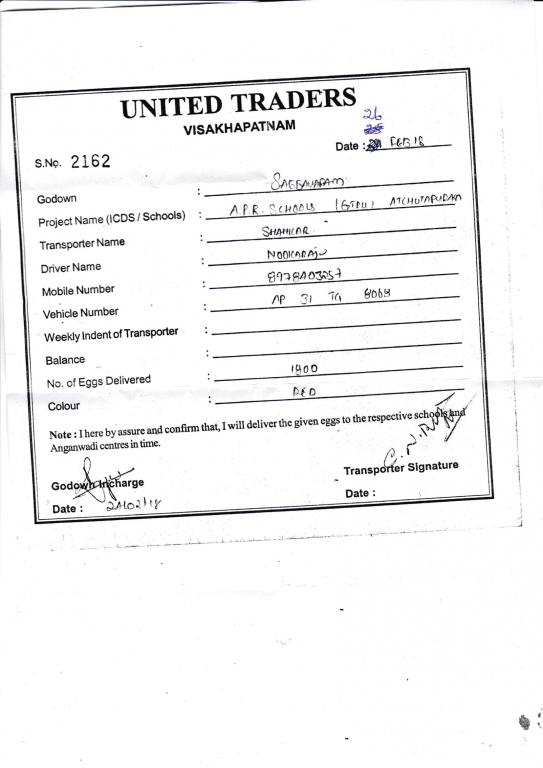 UNITED TRADERS
VISAKHAPATNAM
26
Date : FEB 18
S.No. 2162
Godown :
Project Name (ICDS / Schools) : A.P.R. SCHOOLS ATCHUTAPURAM
Transporter Name : SHANKAR
Driver Name : NOOKARAJU
Mobile Number :
Vehicle Number : AP 31 TG 8068
Weekly Indent of Transporter :
Balance :
No. of Eggs Delivered : 1800
Colour : RED
Note : I here by assure and confirm that, I will deliver the given eggs to the respective schools and
Anganwadi centres in time.
Godown Incharge
Transporter Signature
Date : 24/02/18
Date :